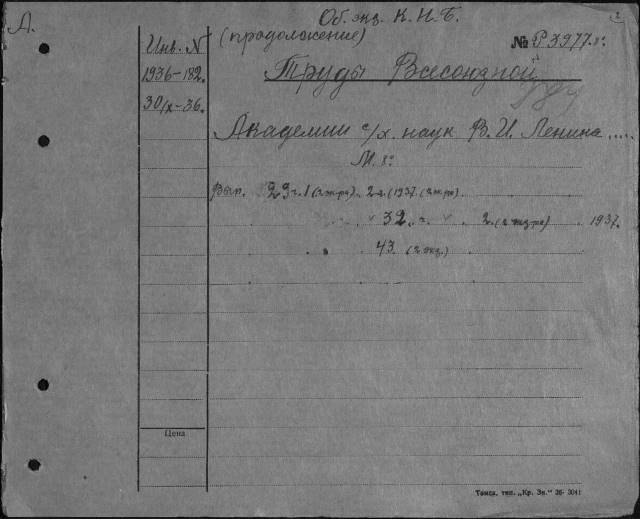 Об. экз. К.Н.Б.
2
А.
(продолжение)
Инв. N
№ Р3977.8°
1936-182.
Труды Всесоюзной
30/X-36.
Академии с/х. наук В. И. Ленина.....
М. 8°
Вып. 29 ч. 1 (2 экз-ра). 2 ч. (1937. (2 экз-ра)
" 32. ч. " 2. (2 экз-ра) 1937.
" 43. (2 экз.)
Цена
Томск. тип. „Кр. Зн." 36- 3041